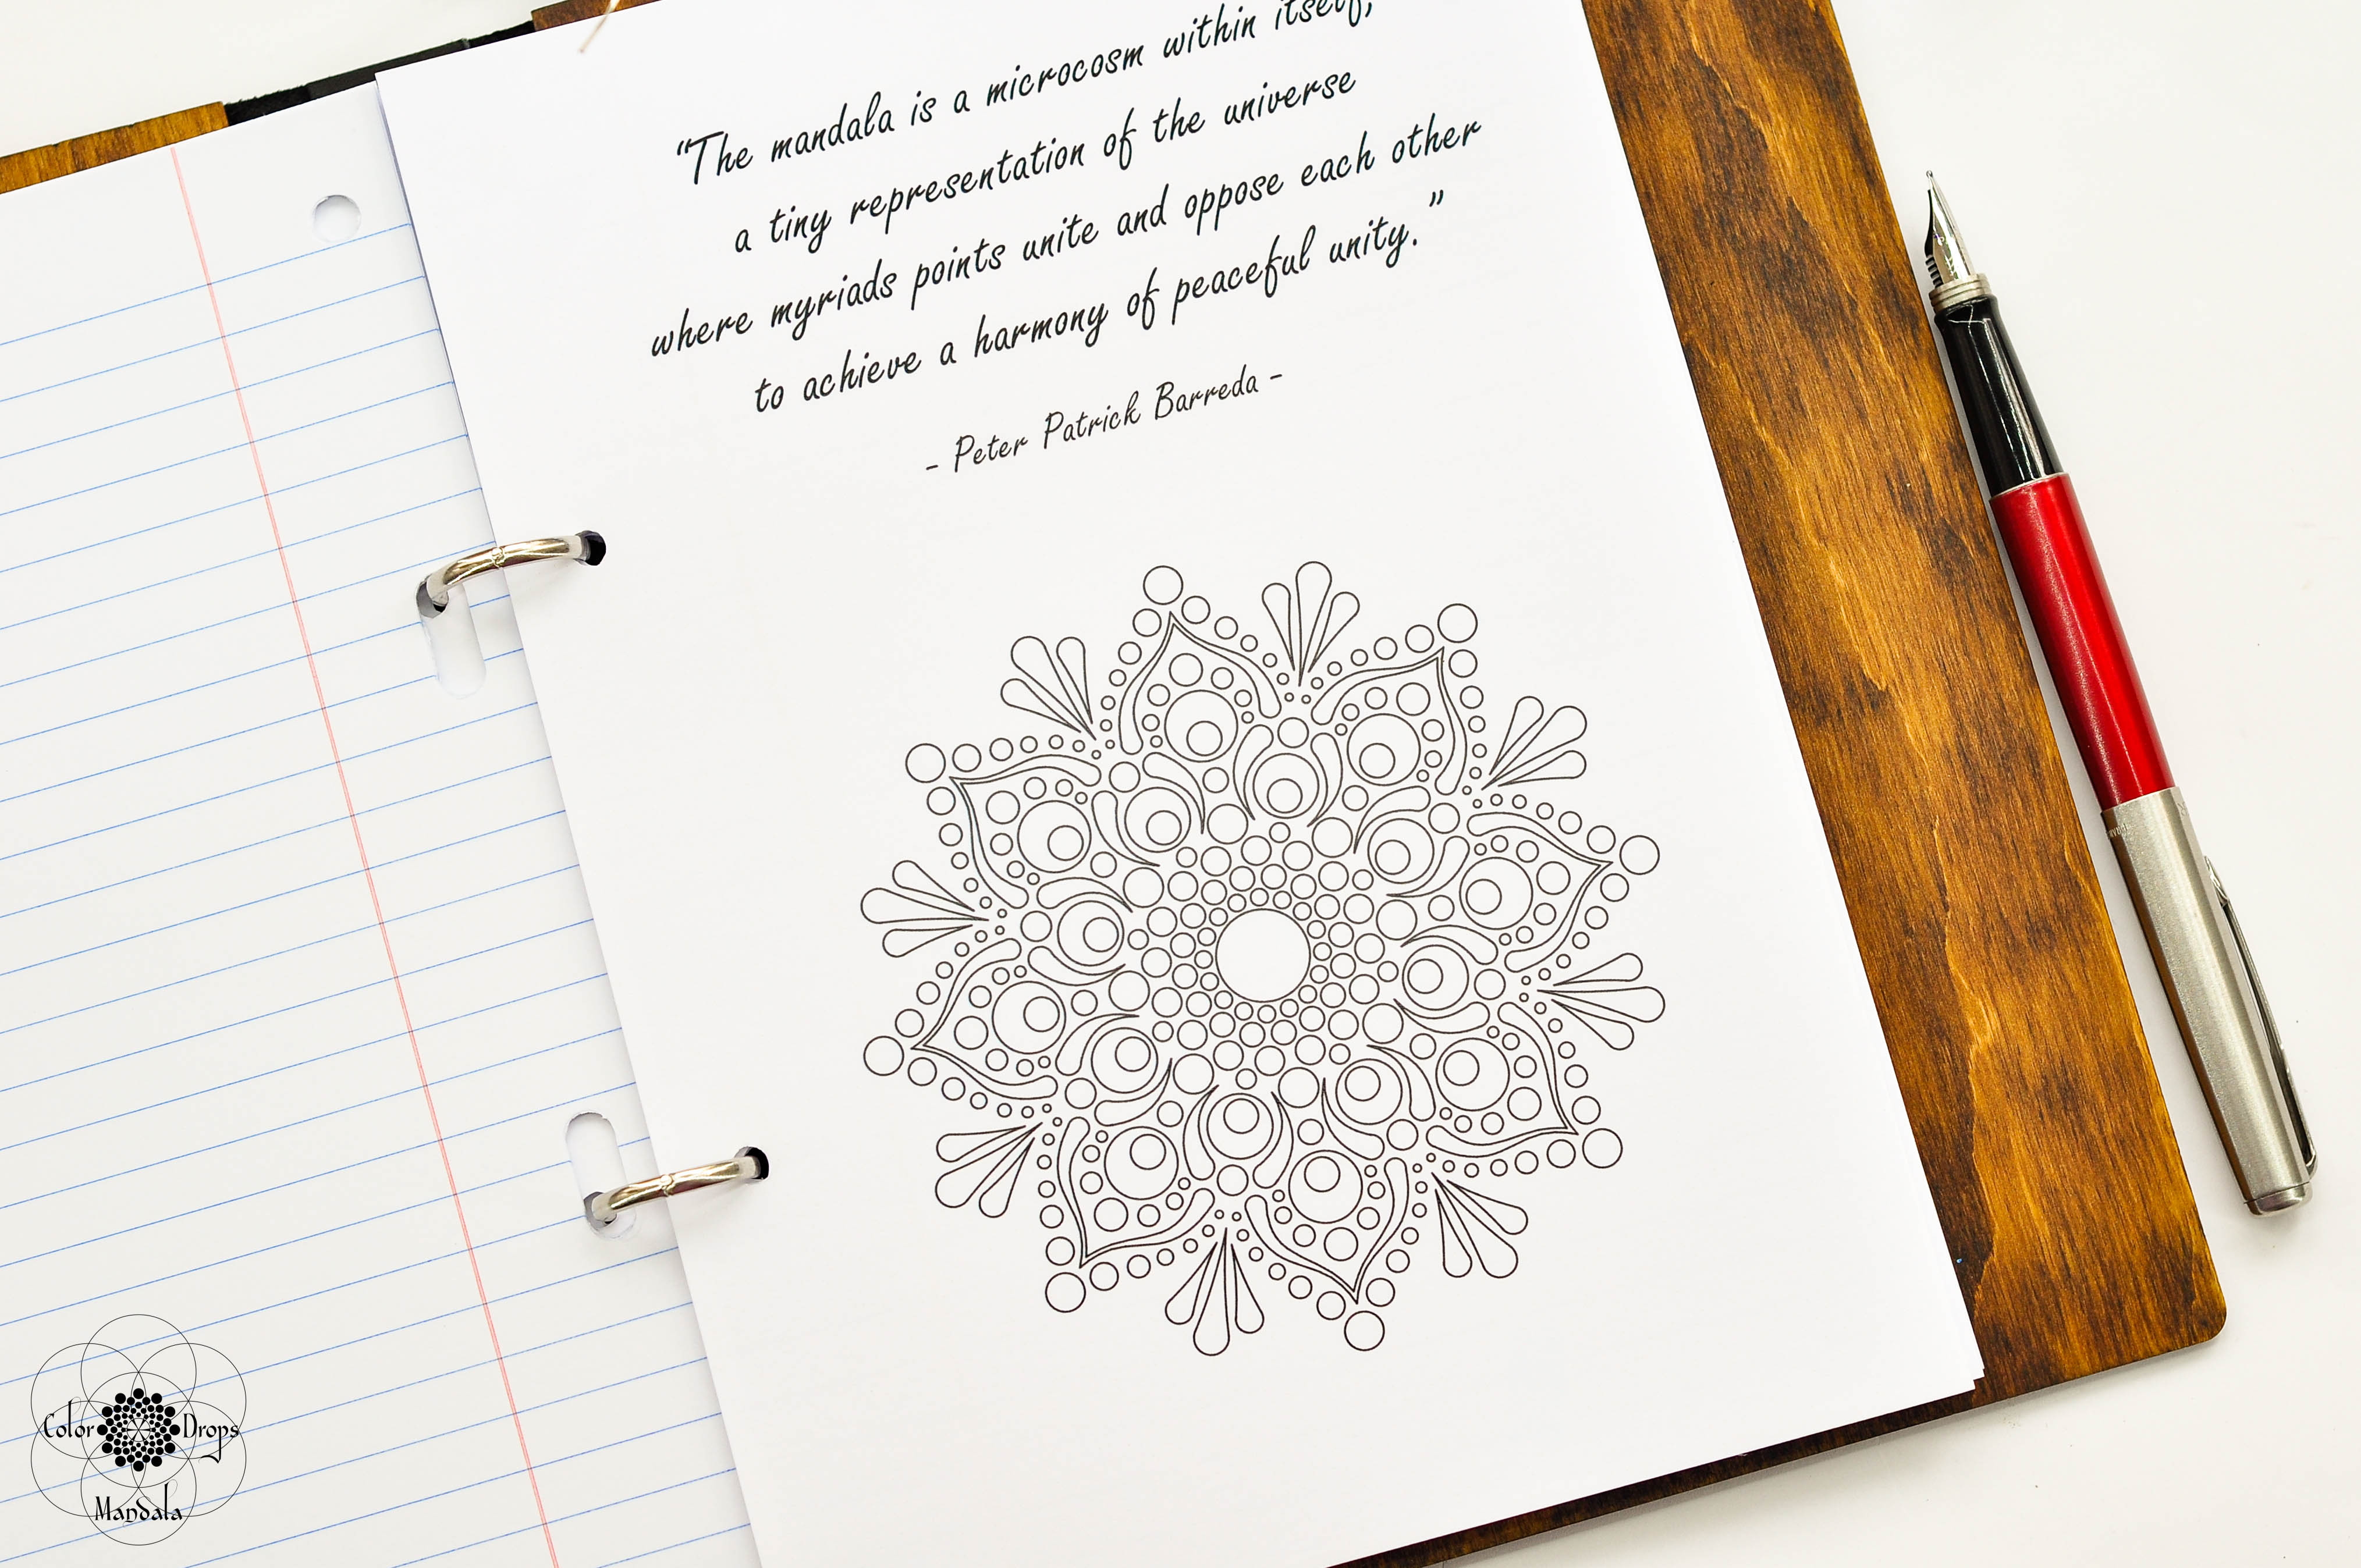 “The mandala is a microcosm within itself,
a tiny representation of the universe
where myriads points unite and oppose each other
to achieve a harmony of peaceful unity.”
- Peter Patrick Barreda -
Color Drops
Mandala